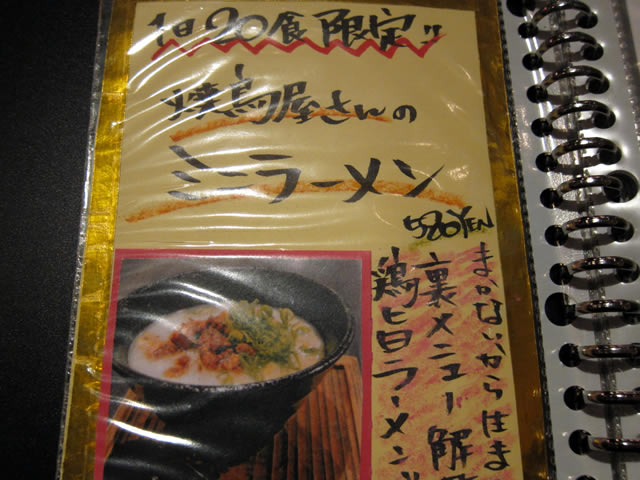 1日20食限定!!
焼鳥屋さんの
ミニラーメン
580YEN
まかないから生ま
裏メニュー解
鶏白ラーメン